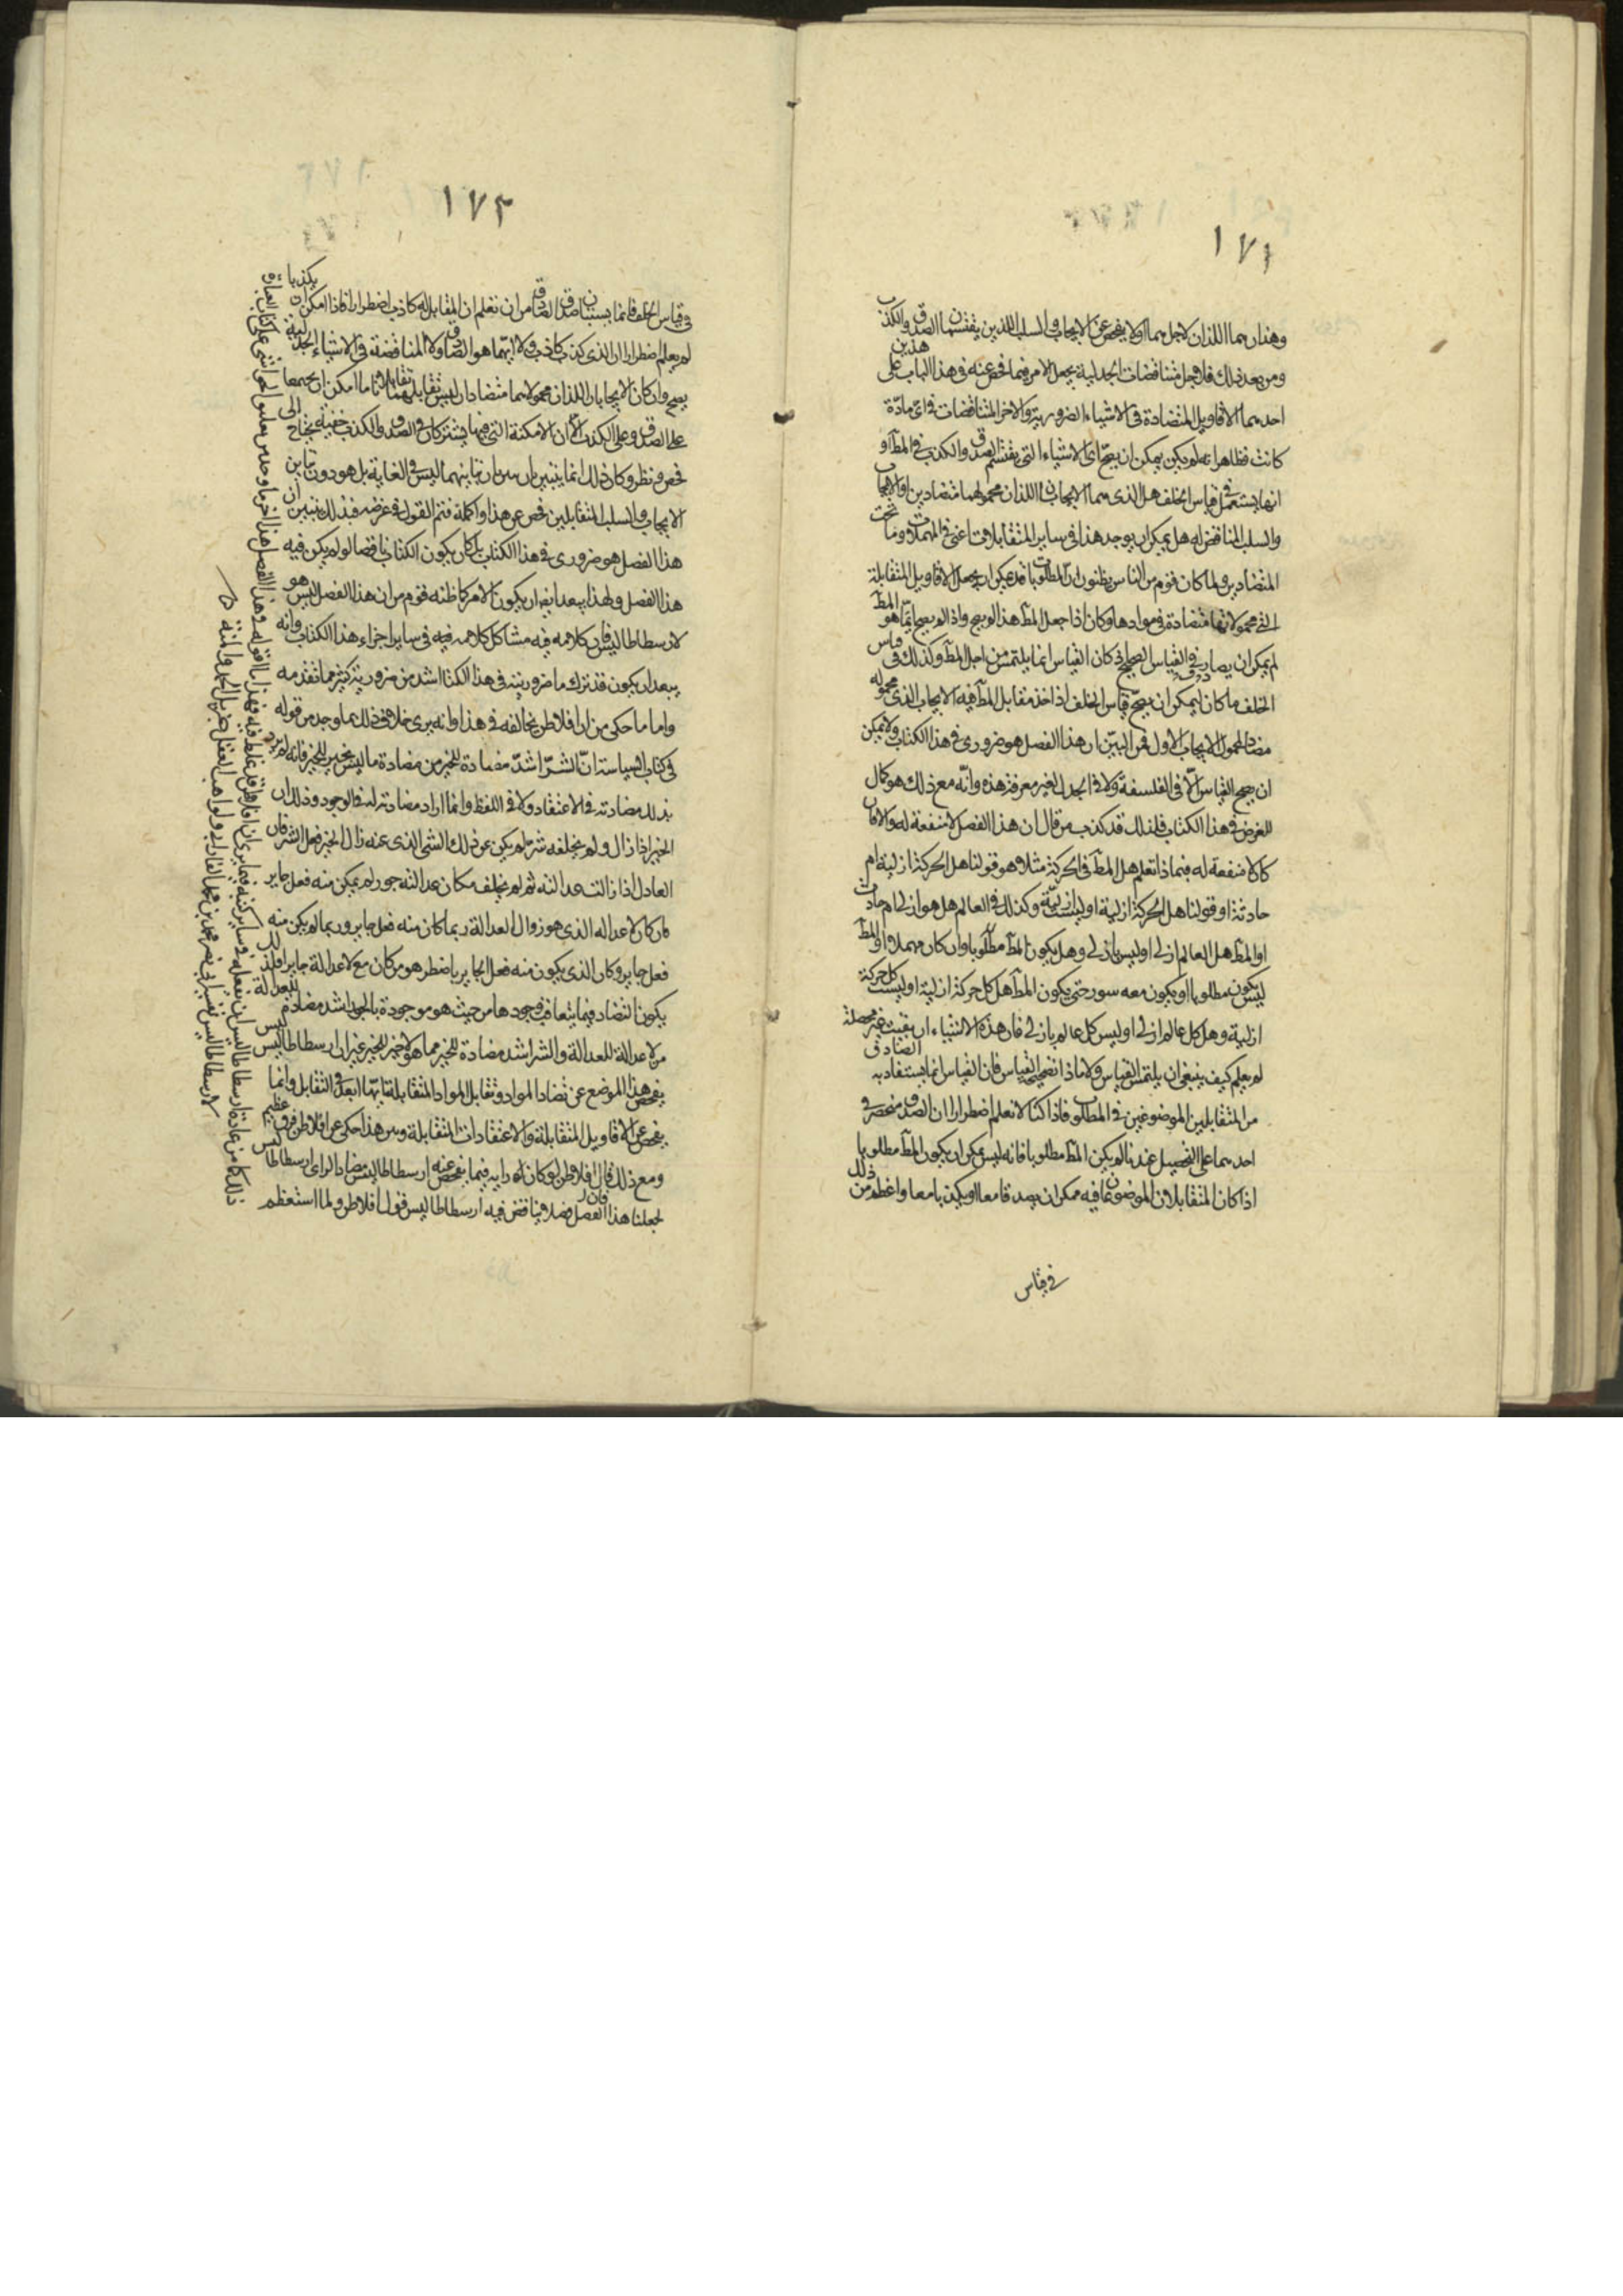 ١٧١
وهذان هما اللذان لاجلهما اولا يفحص عن الايجاب والسلب اللذين يقتسمان الصدق والكذب
ومن بعد ذلك فلاجل متناقضات الجدلية يجعل الامر فيما فحص عنه في هذا الباب على هذين
احدهما الاقاويل المتضادة في الاشياء الضرورية والاخر المتناقضات في اى مادّة
كانت فظاهر انه لم يكن يمكن ان يصحّ اى الاشياء التى يقتسم الصدق والكذب في المطلوب
انها يستعمل في قياس الخلف هل الذى هما الايجابان اللذان محمولهما متضادين او الايجاب
والسلب المناقض له هل يمكن ان يوجد هذا في ساير المتقابلات اعنى في المهملات وما تحت
المتضادين ولما كان قوم من الناس يظنون ان المطلوبات قد يمكن ان يجعل الاقاويل المتقابلة
التى محمولاتها متضادة في موادها وكان اذا جعل المطـ هذا لم يصح واذا لم يصح ايّما هو المطـ
لم يمكن ان يصادف القياس الصحيح اذ كان القياس انما يلتمس من اجل المطـ وكذلك في قياس
الخلف ما كان يمكن ان يصحّ قياس الخلف اذا اخذ مقابل المطـ فيه الايجاب الذى محموله
مضاد لمحمول الايجاب الاول فمن البيّن ان هذا الفصل هو ضرورى في هذا الكتاب ولا يمكن
ان يصح القياس الّا في الفلسفة ولا في الجدل بغير معرفة هذه وانّه مع ذلك هو كمال
للغرض في هذا الكتاب فلذلك قد كذب من قال ان هذا الفصل لا منفعة له والا فان
كان لا منفعة له فبماذا نعلم هل المطـ في الحركة مثلا هو قولنا هل الحركة ازلية ام
حادثة او قولنا هل الحركة ازلية او ليست ازليّة وكذلك في العالم هل هو ازلى ام حادث
او المطـ هل العالم ازلى او ليس بازلى وهل يكون المطـ مطلوبا وان كان مهملا او المطـ
ليس يكون مطلوبا او يكون معه سور حتى يكون المطـ هل كل حركة ازلية او ليست كل حركة
ازلية وهل كل عالم ازلى او ليس كل عالم بازلى فان هذه الاشياء ان بقيت غير محصلة
لم يعلم كيف ينبغى ان يلتمس القياس ولا ماذا نضع القياس فان القياس انما يستفاد به الصادق
من المتقابلين الموضوعين في المطلوب فاذا كنا لا نعلم اضطرارا ان الصدق منحصر في
احدهما على التحصيل عندنا لم يكن المطـ مطلوبا فانه ليس يمكن ان يكون المطـ مطلوبا
اذا كان المتقابلان الموضوعان فيه ممكن ان يصدقا معا او يكذبا معا واعظم من ذلك
في قياس
١٧٢
في قياس الخلف فانما يستبان صدق الصادق من ان نعلم ان المقابل له كاذب اضطرارا فاذا امكن ان يكذبا
لم يعلم اضطرارا ان الذى كذب كاذب ولا ايّهما هو الصادق ولا المناقضة في الاشياء الجدلية
يصح وان كان الايجابان اللذان محمولاهما متضادان ليس تقابلهما تقابلا تاما امكن ان يجتمعا
على الصدق وعلى الكذب الّا ان الامكنة التى فيها يشتركان في الصدق والكذب خفية يحتاج الى
فحص ونظر وكان ذلك انما يتبين بان يبين ان تباينهما ليس في الغاية بل هو دون تباين
الايجاب والسلب المتقابلين فحص عن هذا واكمله فتم القول في غرضه فبذلك تبين ان
هذا الفصل هو ضرورى في هذا الكتاب بل كان يكون الكتاب ناقصا لو لم يكن فيه
هذا الفصل ولهذا يبعد ايضا ان يكون الامر كما ظنه قوم من ان هذا الفصل ليس هو
لارسطاطاليس فان كلامه فيه مشاكل كلامه فيه في ساير اجزاء هذا الكتاب وانه
يبعد ان يكون قد ترك ما ضروريته في هذا الكتاب اشد من ضرورية كثير مما تقدمه
واما ما حكى من ان افلاطن يخالفه في هذا وانه يرى خلاف ذلك بما وجد من قوله
في كتاب السياسة انّ الشرّ اشدّ مضادة للخير من مضادة ما ليس بخير للخير فانه لم يرد
بذلك مضادته في الاعتقاد ولا في اللفظ وانما اراد مضادته له في الوجود وذلك ان
الخير اذا زال ولم يخلفه شرّ لم يكن عن ذلك الشئ الذى عنه زال الخير فعل الشر فان
العادل اذا زالت عدالته ثم لم يخلف مكان عدالته جور لم يمكن منه فعل جاير
فان كان لا عدالة الذى هو زوال العدالة ربما كان منه فعل جاير وربما لم يكن منه
فعل جاير وكان الذى يكون منه فعل الجاير باضطر هو من كان مع لا عدالة جايرا فلذلك
يكون التضاد فيما يتعاقب وجودها من حيث هو موجودة بالجور اشد مضادة للعدالة
من لا عدالة للعدالة والشر اشد مضادة للخير مما هو لا خير للخير غير ان ارسطاطاليس ليس
يفحص هذا الموضع عن تضاد المواد وتقابل المواد المتقابلة ايّهما ابعد في التقابل وانما
يفحص عن الاقاويل المتقابلة والاعتقادات المتقابلة وبين هذا حكى عن افلاطن فرق عظيم
ومع ذلك فان افلاطن لو كان له رايه فيما يفحص عنه ارسطاطاليس مضاد لراى ارسطاطاليس
لجعلنا هذا الفصل فصلا يناقض فيه ارسطاطاليس قول افلاطن ولما استعظم
ذلك كان من عادة ارسطاطاليس ان يفعله في ساير كتبه فيما يرى ان افلاطن قد غلط فيه فهذا ما اقوله وهذا الفصل هذا اخر ما وجد من تعليق الحواشى على كتاب العبارة
لارسطاطاليس تفسير ابى نصر محمد بن محمد الفارابى ولواهب العقل جزيل الحمد والمنة